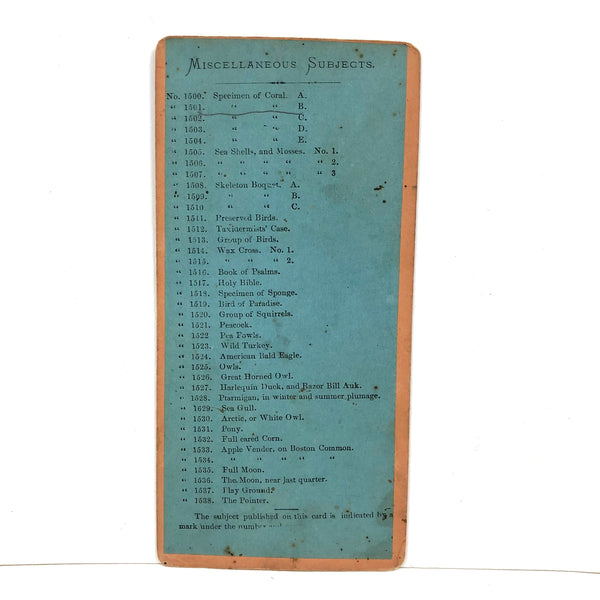 MISCELLANEOUS SUBJECTS.
No. 1500. Specimen of Coral. A.
" 1501. " " B.
" 1502. " " C.
" 1503. " " D.
" 1504. " " E.
" 1505. Sea Shells, and Mosses. No. 1.
" 1506. " " " " " 2.
" 1507. " " " " " 3
" 1508. Skeleton Boquet. A.
" 1509. " " B.
" 1510 " " C.
" 1511. Preserved Birds.
" 1512. Taxidermists' Case.
" 1513. Group of Birds.
" 1514. Wax Cross. No. 1.
" 1515. " " " 2.
" 1516. Book of Psalms.
" 1517. Holy Bible.
" 1518. Specimen of Sponge.
" 1519. Bird of Paradise.
" 1520. Group of Squirrels.
" 1521. Peacock.
" 1522 Pea Fowls.
" 1523. Wild Turkey.
" 1524. American Bald Eagle.
" 1525. Owls.
" 1526. Great Horned Owl.
" 1527. Harlequin Duck, and Razor Bill Auk.
" 1528. Ptarmigan, in winter and summer plumage.
" 1629. Sea Gull.
" 1530. Arctic, or White Owl.
" 1531. Pony.
" 1532. Full eared Corn.
" 1533. Apple Vender, on Boston Common.
" 1534. " " " " "
" 1535. Full Moon.
" 1536. The Moon, near last quarter.
" 1537. Play Ground.
" 1538. The Pointer.
The subject published on this card is indicated by a
mark under the number